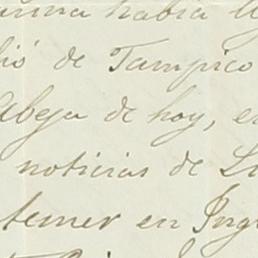 había
lió de Tampico
Abeja de hoy, e
noticias de L
temer en Ing